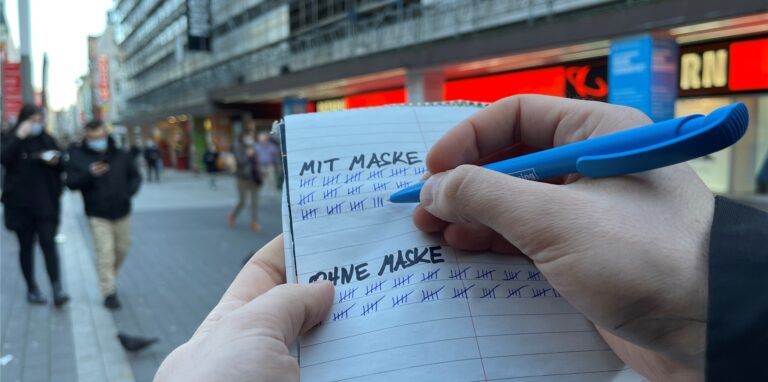 MIT MASKE
OHNE MASKE
RN